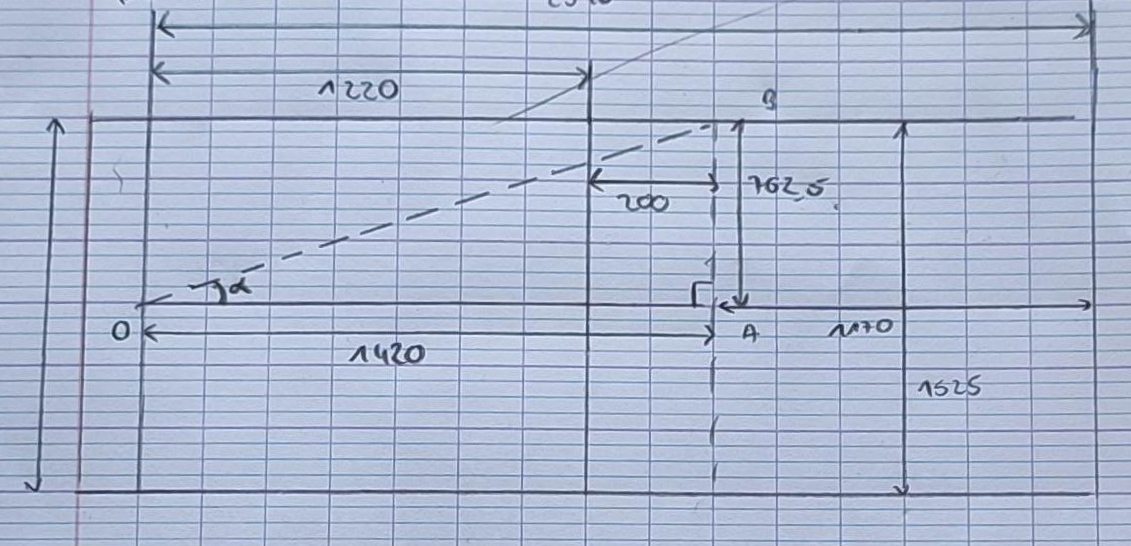 1220
B
200
762,5
α
O
1420
A
1170
1525